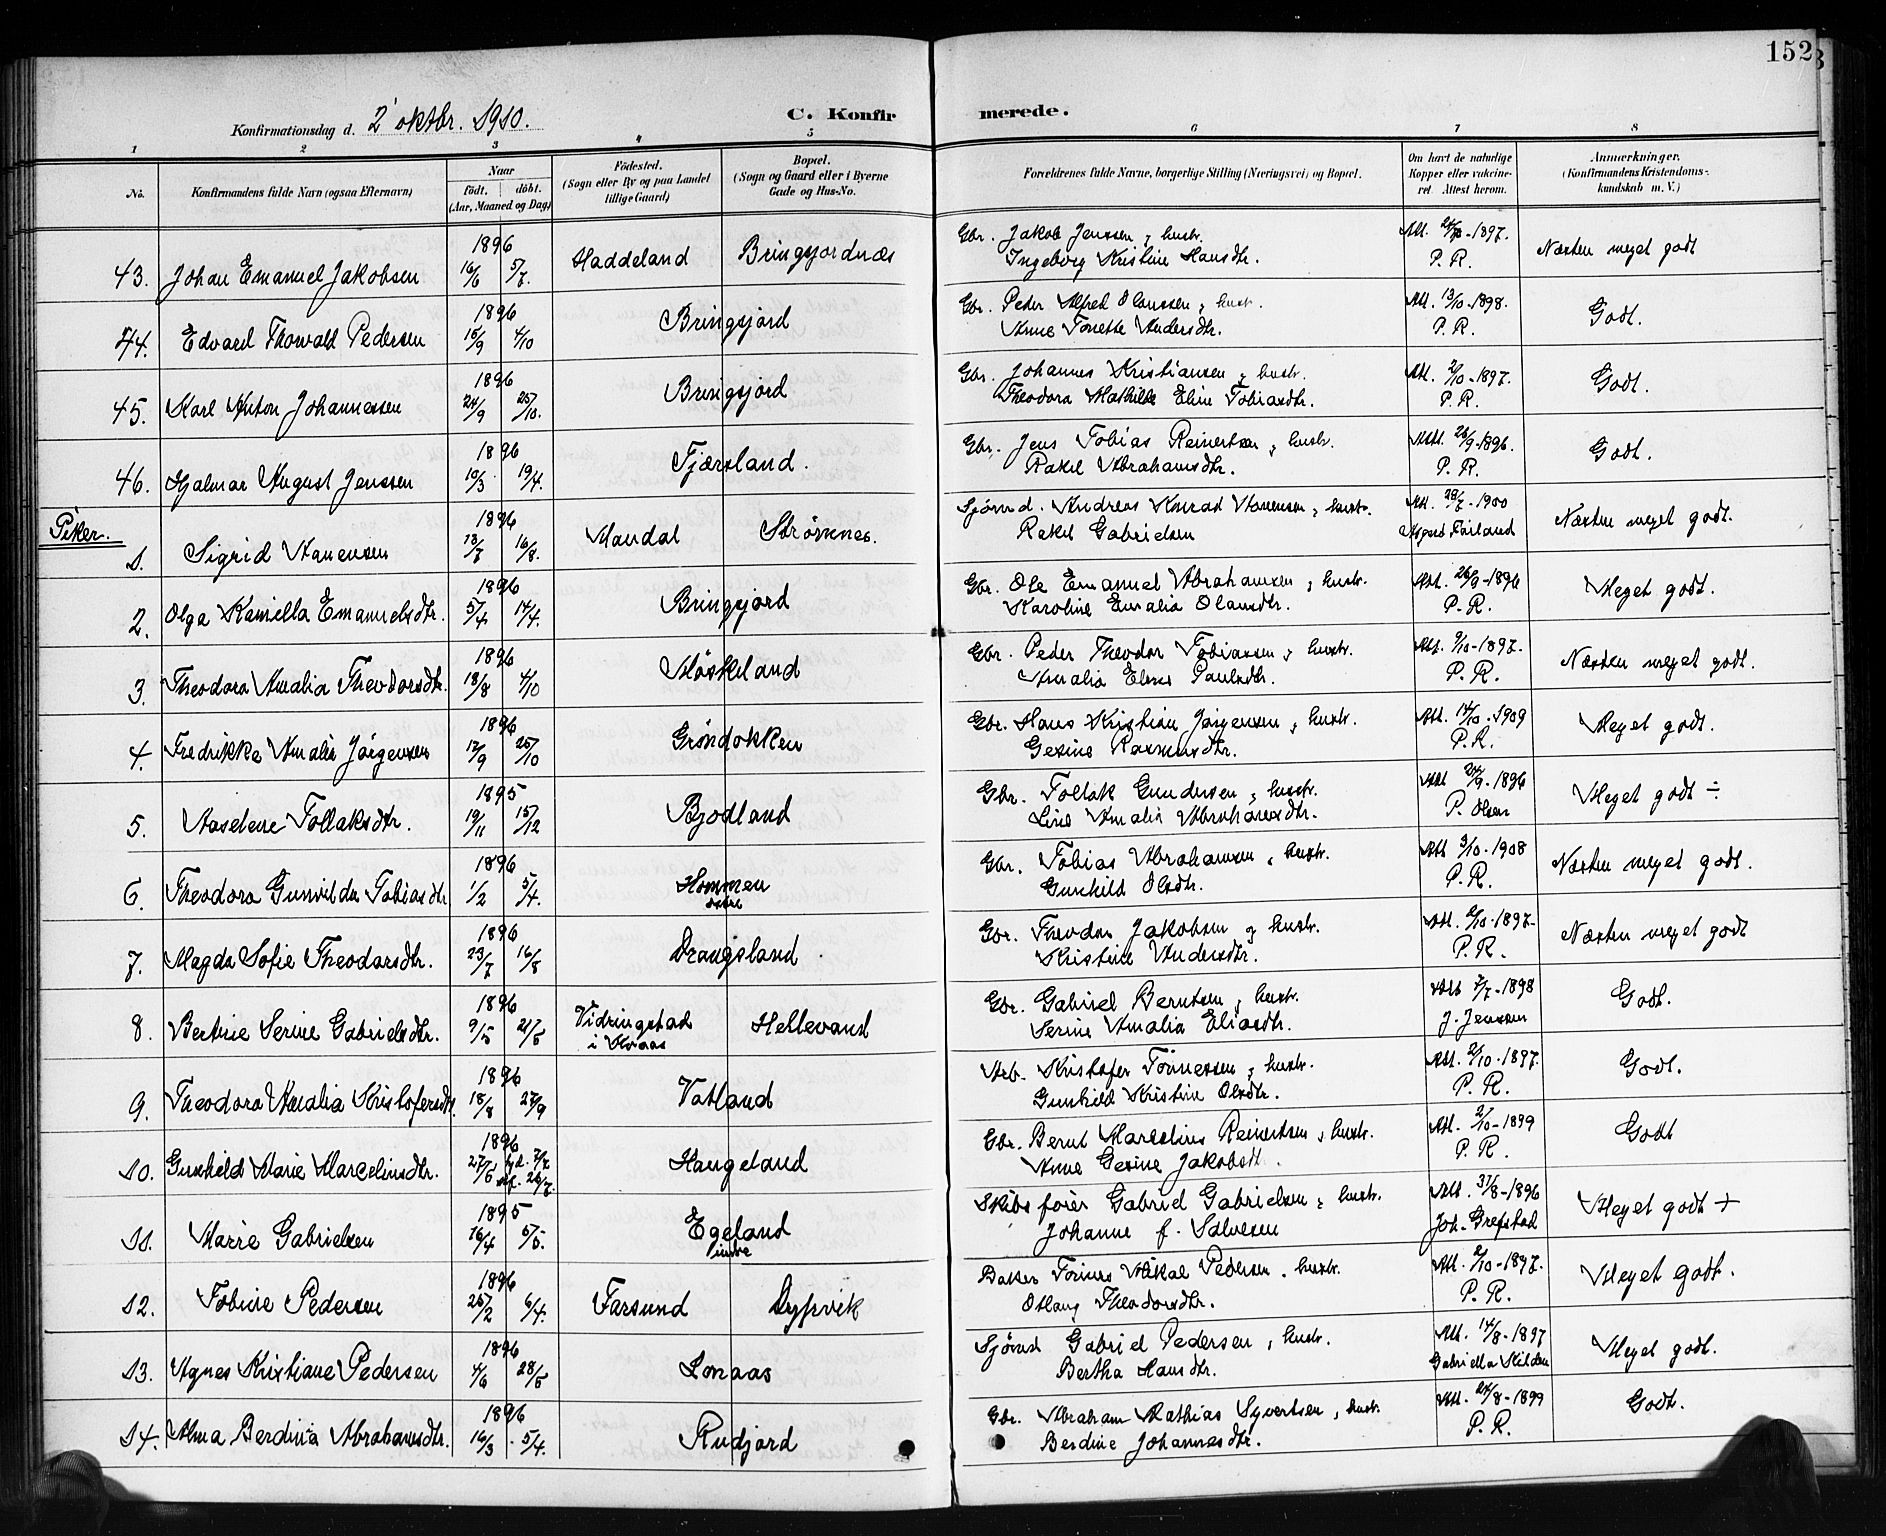 152
Konfirmationsdag d. 2' oktbr. 1910.
C. Konfirmerede.
1 2 3 4 5 6 7 8
No.
Konfirmandens fulde Navn (ogsaa Efternavn)
Naar
født. døbt.
(Aar, Maaned og Dag)
Fødested.
(Sogn eller By og paa Landet
tillige Gaard)
Bopæl.
(Sogn og Gaard eller i Byerne
Gade og Hus-No.
Forældrenes fulde Navne, borgerlige Stilling (Næringsvei) og Bopæl.
Om havt de naturlige
Kopper eller vakcine-
ret Attest herom.
Anmærkninger.
(Konfirmandens Kristendoms-
kundskab m. V.)
43. Johan Emanuel Jakobsen 1896 16/6 5/7 Haddeland Bringsjordnæs
Gbr. Jakob Jenssen, hustr.
Ingeborg Kristine Hansdtr.
Att. -1897. P. R. Næsten meget godt
44. Edvard Thorvald Pedersen 1896 15/9 4/10 Bringsjord
Gbr. Peder Alfred Olaussen, hustr.
Anne Tonette Andersdtr.
Att. 13/10-1898. P. R. Godt.
45. Karl Anton Johannessen 1896 24/9 25/10. Bringsjord
Gbr. Johannes Kristiansen, hustr.
Theodora Mathilde Eline Tobiasdtr.
Att. 2/10-1897. P. R. Godt.
46. Hjalmar August Jenssen 1896 10/3 19/4. Fjærsland.
Gbr. Jens Tobias Reinertsen, hustr.
Rakel Abrahamsdtr.
Att. 26/9-1896. P. R. Godt.
Piker.
1. Sigrid Aanensen 1896 13/7 16/8. Mandal Strømnes.
Sjømd. Andreas Konrad Aanensen, hustr.
Rakel Gabrielsen
Att. 28/7-1900 Asgerd Färland Næsten meget godt.
2. Olga Kamilla Emanuelsdtr. 1896 5/4 14/4. Bringsjord
Gbr. Ole Emanuel Abrahamsen, hustr.
Karoline Emalia Olausdtr.
Att. 26/9-1896 P. R. Meget godt.
3. Theodora Amalia Theodorsdtr. 1896 18/8 4/10 Møskeland
Gbr. Peder Theodor Tobiassen, hustr.
Amalia Elene Paulsdtr.
Att. 9/10-1897. P. R. Næsten meget godt.
4. Fredrikke Amalia Jørgensen 1896 12/9 25/10 Grøndokken
Gbr. Hans Kristian Jørgensen, hustr.
Gesine Rasmusdtr.
Att. 14/10-1909 P. R. Meget godt.
5. Aaselene Tollaksdtr. 1895 19/11 15/12 Bjodland
Gbr. Tollak Gundersen, hustr.
Line Amalia Abrahamsdtr.
Att 24/9-1896 P. Olsen Meget godt ÷
6. Theodora Gunvilda Tobiasdtr 1896 1/2 5/4. Hommen
østre
Gbr. Tobias Abrahamsen, hustr.
Gunhild Olsdtr.
Att 3/10-1908 P. R. Næsten meget godt.
7. Magda Sofie Theodorsdtr. 1896 23/7 16/8 Drangsland
Gbr. Theodor Jakobsen og hustr.
Kristine Andersdtr.
Att. 2/10-1897. P. R. Næsten meget godt
8. Bertine Serine Gabrielsdtr. 1896 9/5 21/5 Vidringstad
i Kvaas Hellevand
Gbr. Gabriel Berntsen, hustr.
Serine Amalia Eliasdtr.
Att 7/7-1898 J. Jenssen Godt.
9. Theodora Amalia Kristofersdtr 1896 18/8 27/9 Vatland
Arb. Kristofer Tønnessen, hustr.
Gunhild Kristine Olsdtr.
Att. 2/10-1897. P. R. Godt.
10. Gunhild Marie Marcelinsdtr. 1896 27/6 7/7 26/7. Haugeland
Gbr. Bernt Marcelius Reinertsen, hustr.
Anne Gesine Jakobsdtr.
Att. 2/10-1899 P. R. Godt
11. Marie Gabrielsen 1895 16/4 5/5. Egeland
indre
Skibsfører Gabriel Gabrielsen, hustr.
Johanne f. Salvesen
Att. 31/8-1896 Joh. Grefstad Meget godt +
12. Tobine Pedersen 1896 25/2 6/4. Farsund Dypvik
Baker Tønnes Mikal Pedersen, hustr.
Otlaug Theodorsdtr.
Att. 2/10-1897. P. R. Meget godt.
13. Agnes Kristiane Pedersen 1896 4/6 28/6 Lonaas
Sjømd Gabriel Pedersen, hustr.
Bertha Hansdtr.
Att. 14/8-1897 Gabriella Kilden Meget godt.
14. Alma Berdinia Abrahamsdtr. 1896 16/3 5/4. Rudjord
Gbr. Abraham Mathias Syvertsen, hustr.
Berdine Johannesdtr.
Att. 24/8-1899 P. R. Godt.